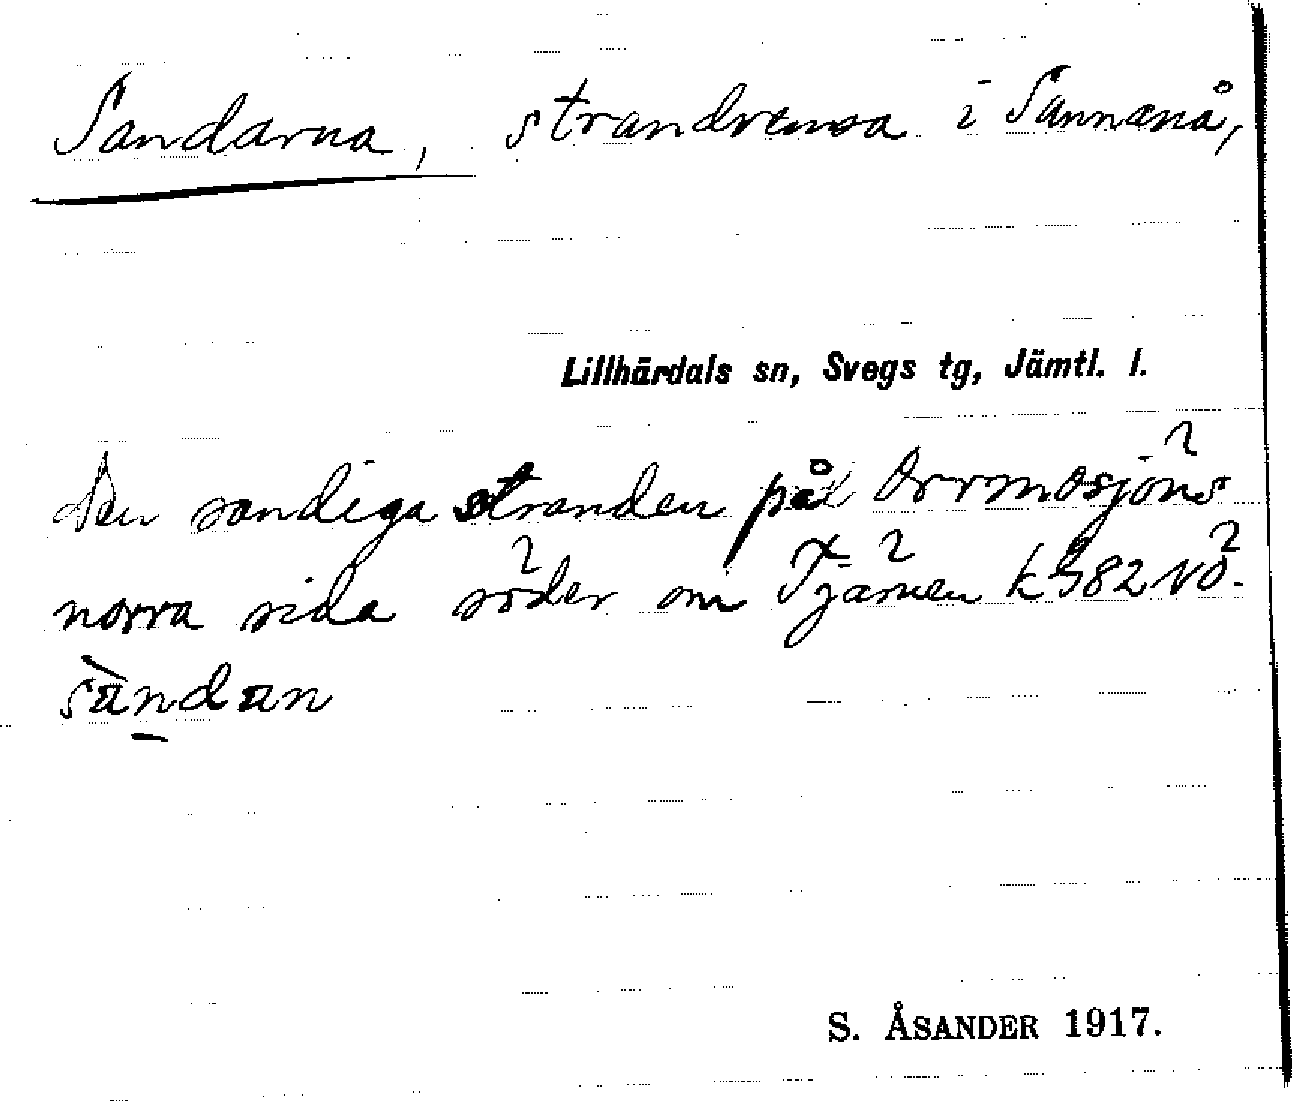 Sandarna, strandremsa i Sannanå,
Lillhärdals sn, Svegs tg, Jämtl. l.
Den sandiga stranden på Orrmosjöns
norra sida söder om Tjärnen k 382 NÖ.
sàndan
S. ÅSANDER 1917.